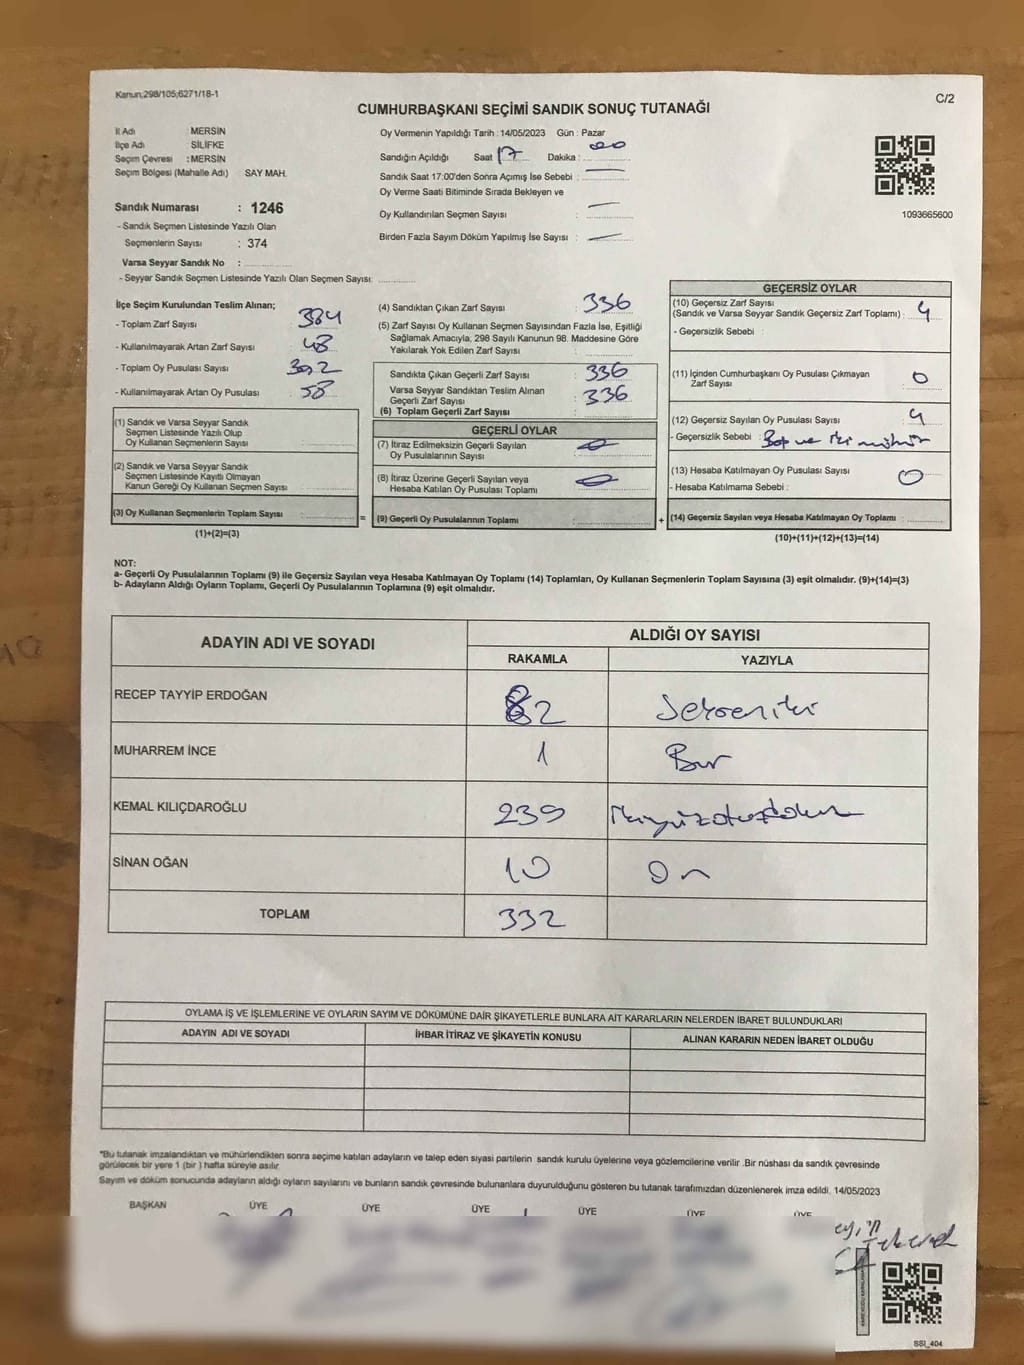 Kanun;298/105;6271/18-1
CUMHURBAŞKANI SEÇİMİ SANDIK SONUÇ TUTANAĞI
C/2
İl Adı : MERSİN
İlçe Adı : SİLİFKE
Seçim Çevresi : MERSİN
Seçim Bölgesi (Mahalle Adı) SAY MAH.
Sandık Numarası : 1246
- Sandık Seçmen Listesinde Yazılı Olan
Seçmenlerin Sayısı : 374
Varsa Seyyar Sandık No :
- Seyyar Sandık Seçmen Listesinde Yazılı Olan Seçmen Sayısı:
Oy Vermenin Yapıldığı Tarih : 14/05/2023 Gün : Pazar
Sandığın Açıldığı Saat 17 Dakika : 00
Sandık Saat 17:00'den Sonra Açımış İse Sebebi :
Oy Verme Saati Bitiminde Sırada Bekleyen ve
Oy Kullandırılan Seçmen Sayısı :
Birden Fazla Sayım Döküm Yapılmış İse Sayısı :
1093665600
İlçe Seçim Kurulundan Teslim Alınan;
- Toplam Zarf Sayısı : 384
- Kullanılmayarak Artan Zarf Sayısı : 48
- Toplam Oy Pusulası Sayısı : 392
- Kullanılmayarak Artan Oy Pusulası : 58
(1) Sandık ve Varsa Seyyar Sandık
Seçmen Listesinde Yazılı Olup
Oy Kullanan Seçmenlerin Sayısı :
(2) Sandık ve Varsa Seyyar Sandık
Seçmen Listesinde Kayıtlı Olmayan
Kanun Gereği Oy Kullanan Seçmen Sayısı :
(3) Oy Kullanan Seçmenlerin Toplam Sayısı :
(1)+(2)=(3)
(4) Sandıktan Çıkan Zarf Sayısı : 336
(5) Zarf Sayısı Oy Kullanan Seçmen Sayısından Fazla İse, Eşitliği
Sağlamak Amacıyla, 298 Sayılı Kanunun 98. Maddesine Göre
Yakılarak Yok Edilen Zarf Sayısı :
Sandıkta Çıkan Geçerli Zarf Sayısı : 336
Varsa Seyyar Sandıktan Teslim Alınan
Geçerli Zarf Sayısı : 336
(6) Toplam Geçerli Zarf Sayısı :
GEÇERLİ OYLAR
(7) İtiraz Edilmeksizin Geçerli Sayılan
Oy Pusulalarının Sayısı : 0
(8) İtiraz Üzerine Geçerli Sayılan veya
Hesaba Katılan Oy Pusulası Toplamı : 0
= (9) Geçerli Oy Pusulalarının Toplamı :
GEÇERSİZ OYLAR
(10) Geçersiz Zarf Sayısı
(Sandık ve Varsa Seyyar Sandık Geçersiz Zarf Toplamı) : 4
- Geçersizlik Sebebi :
(11) İçinden Cumhurbaşkanı Oy Pusulası Çıkmayan
Zarf Sayısı : 0
(12) Geçersiz Sayılan Oy Pusulası Sayısı : 4
- Geçersizlik Sebebi : Boş ve iki mühür
(13) Hesaba Katılmayan Oy Pusulası Sayısı : 0
- Hesaba Katılmama Sebebi :
+ (14) Geçersiz Sayılan veya Hesaba Katılmayan Oy Toplamı :
(10)+(11)+(12)+(13)=(14)
NOT:
a- Geçerli Oy Pusulalarının Toplamı (9) ile Geçersiz Sayılan veya Hesaba Katılmayan Oy Toplamı (14) Toplamları, Oy Kullanan Seçmenlerin Toplam Sayısına (3) eşit olmalıdır. (9)+(14)=(3)
b- Adayların Aldığı Oyların Toplamı, Geçerli Oy Pusulalarının Toplamına (9) eşit olmalıdır.
ADAYIN ADI VE SOYADI
ALDIĞI OY SAYISI
RAKAMLA YAZIYLA
RECEP TAYYİP ERDOĞAN 82 Sekseniki
MUHARREM İNCE 1 Bir
KEMAL KILIÇDAROĞLU 239 İkiyüzotuzdokuz
SİNAN OĞAN 10 On
TOPLAM 332
OYLAMA İŞ VE İŞLEMLERİNE VE OYLARIN SAYIM VE DÖKÜMÜNE DAİR ŞİKAYETLERLE BUNLARA AİT KARARLARIN NELERDEN İBARET BULUNDUKLARI
ADAYIN ADI VE SOYADI İHBAR İTİRAZ VE ŞİKAYETİN KONUSU ALINAN KARARIN NEDEN İBARET OLDUĞU
*Bu tutanak imzalandıktan ve mühürlendikten sonra seçime katılan adayların ve talep eden siyasi partilerin sandık kurulu üyelerine veya gözlemcilerine verilir .Bir nüshası da sandık çevresinde
görülecek bir yere 1 (bir ) hafta süreyle asılır.
Sayım ve döküm sonucunda adayların aldığı oyların sayılarını ve bunların sandık çevresinde bulunanlara duyurulduğunu gösteren bu tutanak tarafımızdan düzenlenerek imza edildi. 14/05/2023
BAŞKAN ÜYE ÜYE ÜYE ÜYE ÜYE ÜYE
SSI_404